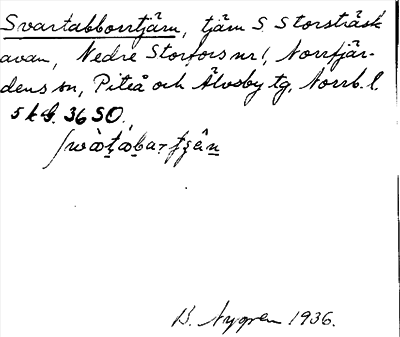 Svartabborrtjärn, tjärn S. Storträsk-
avan, Nedre Storfors nr 1, Norrfjär-
dens sn, Piteå och Älvsby tg, Norrb. l.
5 k G. 3650.
B. Nygren 1936.